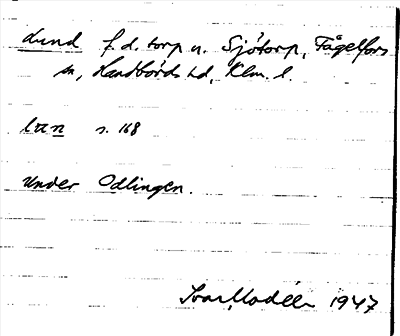 Lund f.d. torp u. Sjötorp, Fågelfors
sn, Handbörds hd, Klm. l.
lɯn s. 168
Under Odlingen.
Ivar Modéer 1947